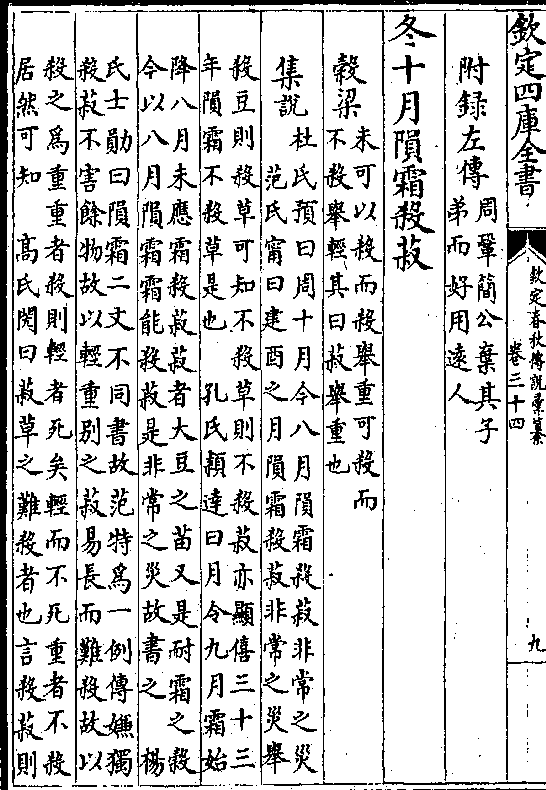 欽定四庫全書
欽定春秋傳說彙纂
卷三十四
九
附錄左傳
周鞏簡公棄其子
弟而好用遠人
冬十月隕霜殺菽
穀梁
未可以殺而殺舉重可殺而
不殺舉輕其曰菽舉重也
集說
杜氏預曰周十月今八月隕霜殺菽非常之災
范氏甯曰建酉之月隕霜殺菽非常之災舉
殺豆則殺草可知不殺草則不殺菽亦顯僖三十三
年隕霜不殺草是也 孔氏穎達曰月令九月霜始
降八月未應霜殺菽菽者大豆之苗又是耐霜之穀
今以八月隕霜霜能殺菽是非常之災故書之 楊
氏士勛曰隕霜二文不同書故范特為一例傳嫌獨
殺菽不害餘物故以輕重別之菽易長而難殺故以
殺之為重重者殺則輕者死矣輕而不死重者不殺
居然可知 高氏閌曰菽草之難殺者也言殺菽則